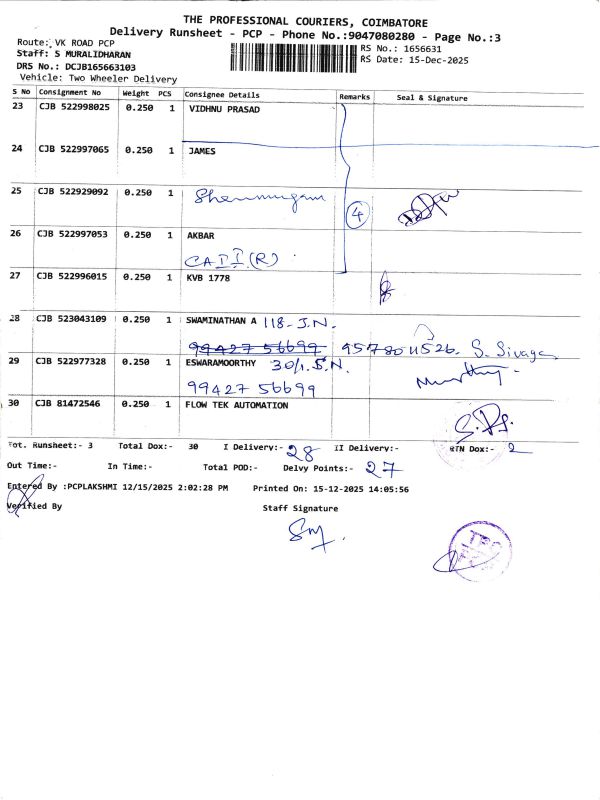 THE PROFESSIONAL COURIERS, COIMBATORE
Delivery Runsheet - PCP - Phone No.:9047080280 - Page No.:3
Route: VK ROAD PCP
RS No.: 1656631
Staff: S MURALIDHARAN
RS Date: 15-Dec-2025
DRS No.: DCJB165663103
Vehicle: Two Wheeler Delivery
S No Consignment No Weight PCS Consignee Details Remarks Seal & Signature
23 CJB 522998025 0.250 1 VIDHNU PRASAD
24 CJB 522997065 0.250 1 JAMES
25 CJB 522929092 0.250 1 Shenmugam
4
26 CJB 522997053 0.250 1 AKBAR
CADI (R)
27 CJB 522996015 0.250 1 KVB 1778
28 CJB 523043109 0.250 1 SWAMINATHAN A 118-J.N.
99427 56699 9578011526. S. Sivaga
29 CJB 522977328 0.250 1 ESWARAMOORTHY 30/1. S.N.
99427 56699
30 CJB 81472546 0.250 1 FLOW TEK AUTOMATION
Tot. Runsheet:- 3 Total Dox:- 30 I Delivery:- 28 II Delivery:- RTN Dox:- 2
Out Time:- In Time:- Total POD:- Delvy Points:- 27
Entered By :PCPLAKSHMI 12/15/2025 2:02:28 PM Printed On: 15-12-2025 14:05:56
Verified By Staff Signature